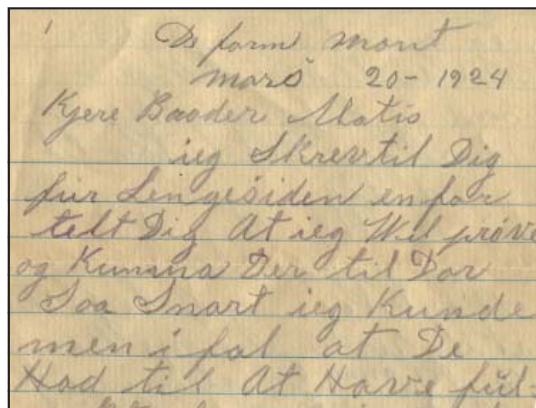 1
De form mont
mars 20-1924
Kjere Baader Matis
ieg Skrev til Dig
für Lengesiden en for
telt Dig At ieg Wil pröve
og Kumma Der til Dor
Soa Snart ieg Kunde
men i fal at De
Had til At Have fül-